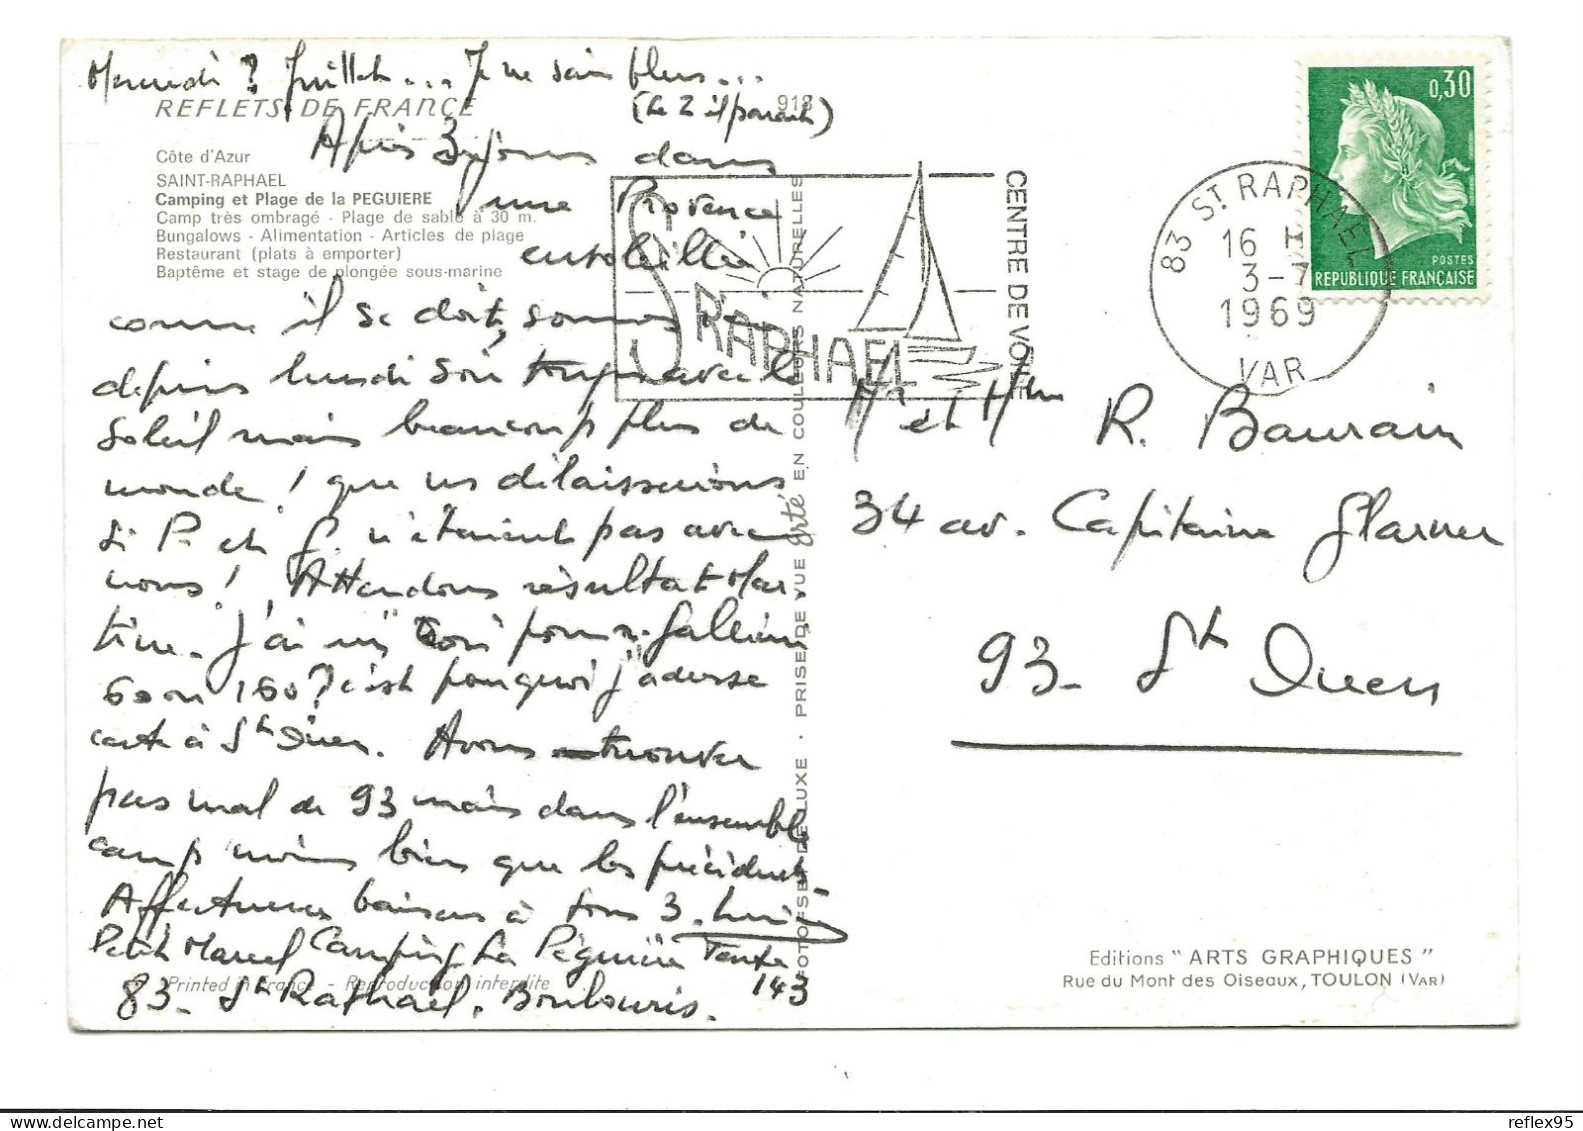 Mercredi ? Juillet... Je ne sais plus...
(le 2 il paraît)
REFLETS DE FRANCE
918
Côte d'Azur
SAINT-RAPHAEL
Camping et Plage de la PEGUIERE
Camp très ombragé - Plage de sable à 30 m.
Bungalows - Alimentation - Articles de plage
Restaurant (plats à emporter)
Baptême et stage de plongée sous-marine
Après 3 jours dans
une Provence
ensoleillée
comme il se doit, sommes ici
depuis lundi soir toujours avec le
soleil mais beaucoup plus de
monde ! que ns délaisserions
si P. et G. n'étaient pas avec
nous ! Attendons résultat Mar
tine. J'ai mis pour r. Galliéni
60 ou 160 ? c'est pourquoi j'adresse
carte à St Ouen. Avons trouver
pas mal de 93 mais dans l'ensemble
camp moins bien que les précédents.
Affectueux baisers à tous 3.
Petit Marcel Camping La Péguière Tente
143
83 - St Raphael. Boulouris.
Printed in France - Reproduction interdite
PHOTOFSET DELUXE · PRISE DE VUE Arté EN COULEURS NATURELLES
ST RAPHAEL
CENTRE DE VOILE
83 ST RAPHAEL
16 H
3-7
1969
VAR
0,30
POSTES
REPUBLIQUE FRANÇAISE
Mr et Mme R. Baurain
34 av. Capitaine Glarner
93 - St Ouen
Editions "ARTS GRAPHIQUES"
Rue du Mont des Oiseaux, TOULON (VAR)
www.delcampe.net
reflex95